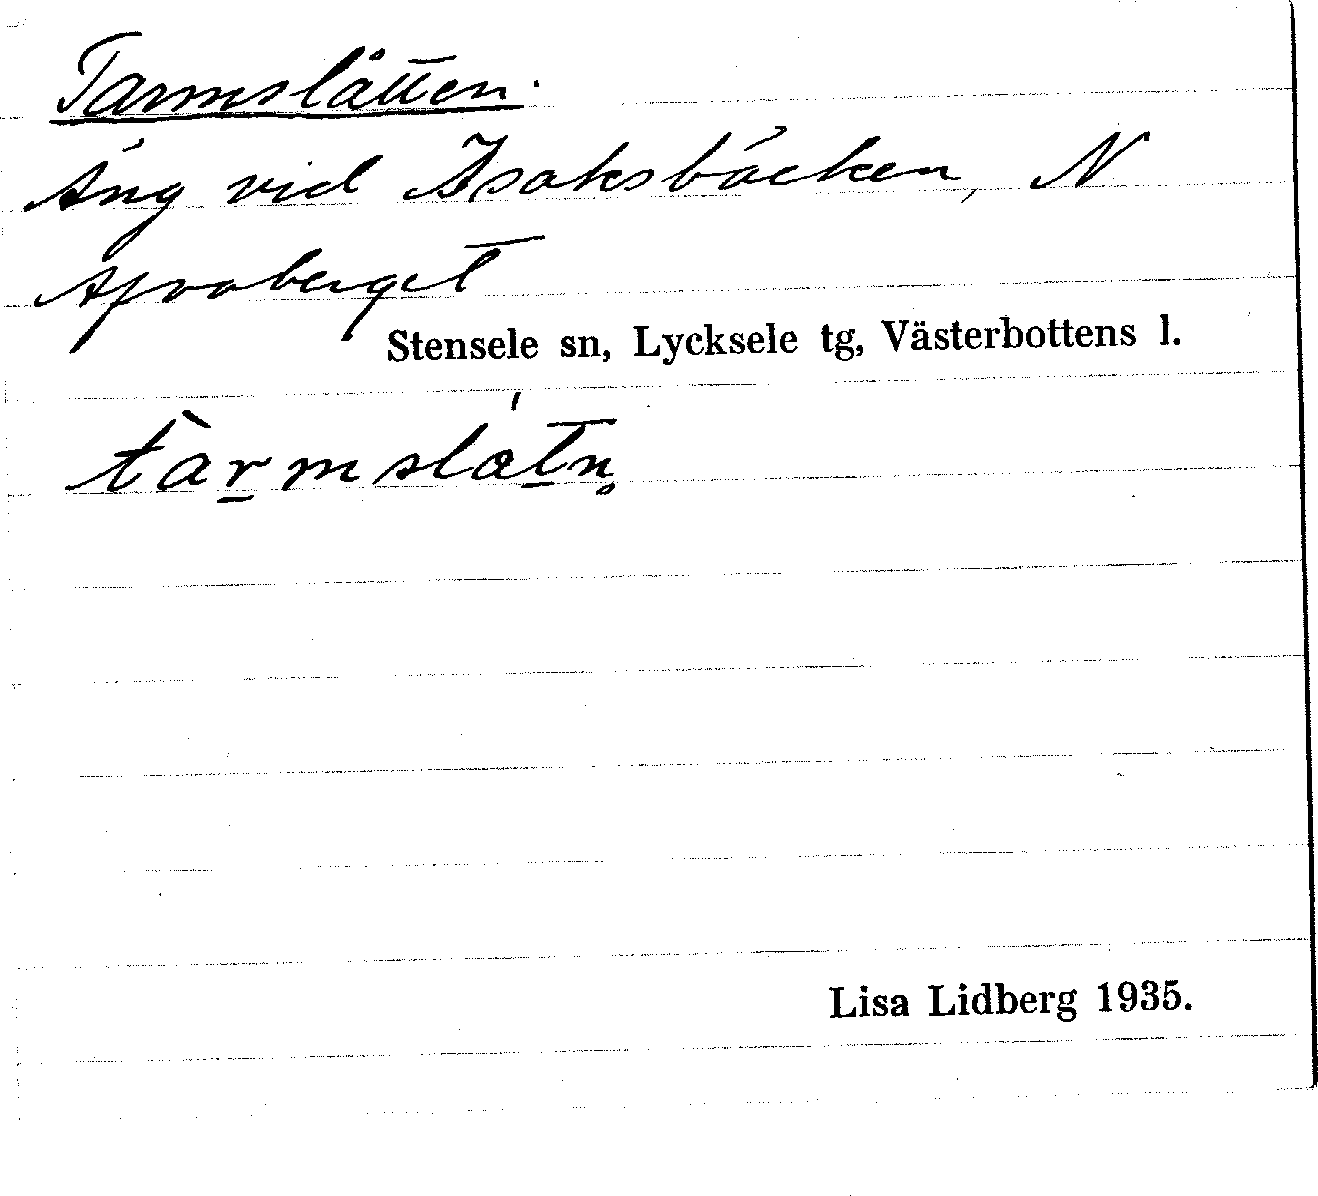 Tarmslåtten.
Äng vid Isaksbäcken, N
Ajvaberget
Stensele sn, Lycksele tg, Västerbottens l.
tàr̲mslát̲n̥
Lisa Lidberg 1935.